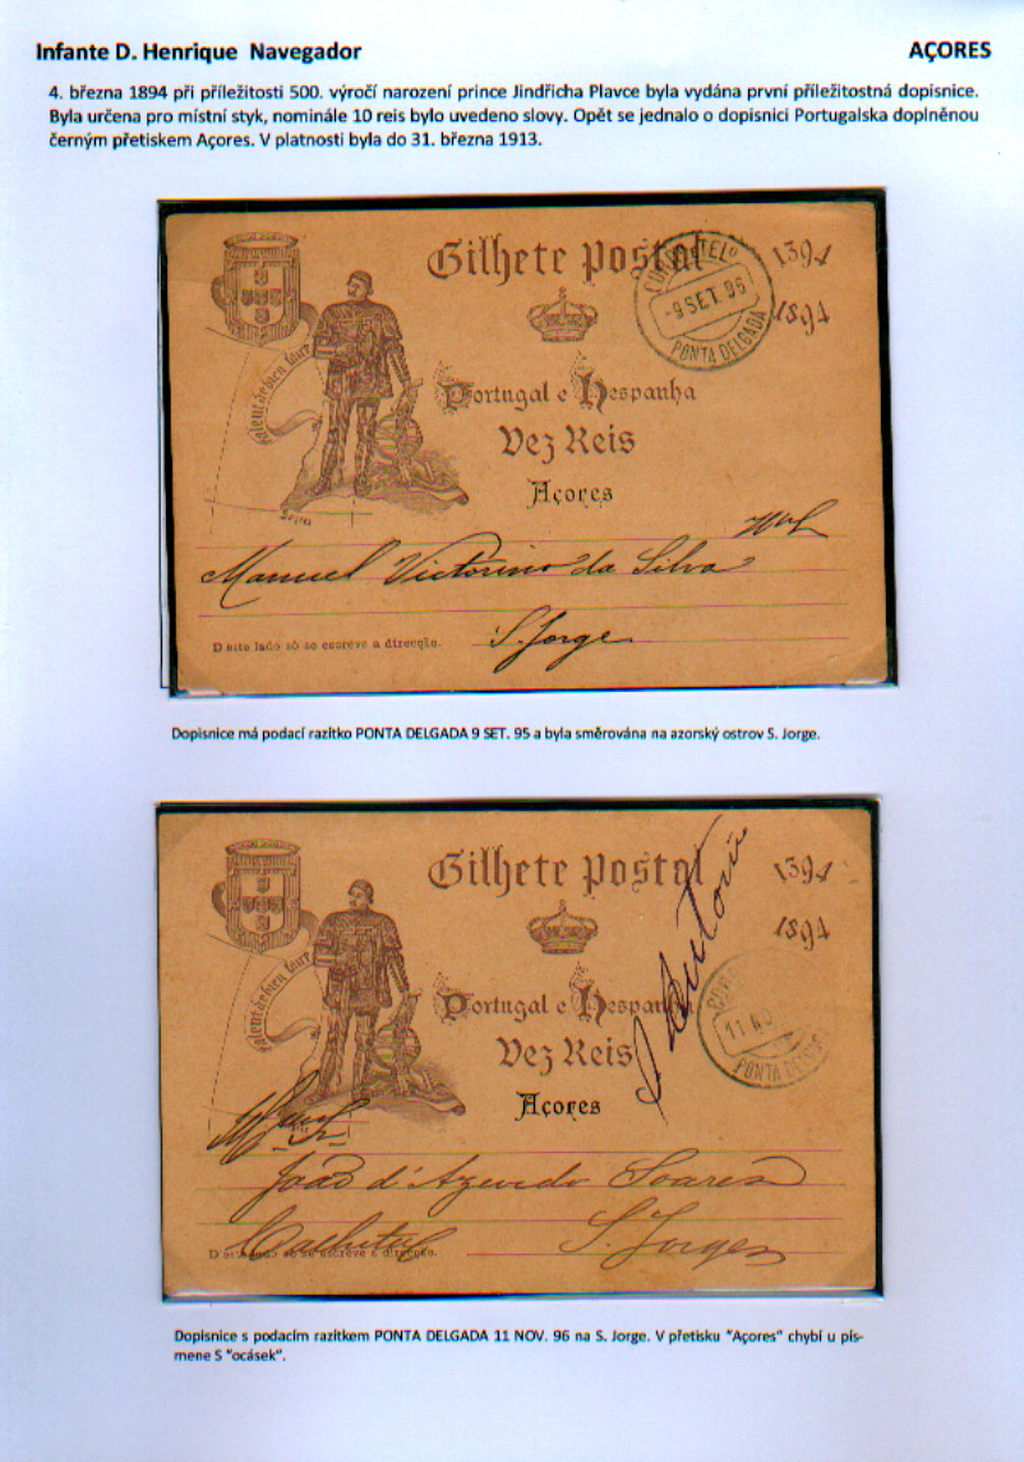 Infante D. Henrique Navegador
AÇORES
4. března 1894 při příležitosti 500. výročí narození prince Jindřicha Plavce byla vydána první příležitostná dopisnice.
Byla určena pro místní styk, nominále 10 reis bylo uvedeno slovy. Opět se jednalo o dopisnici Portugalska doplněnou
černým přetiskem Açores. V platnosti byla do 31. března 1913.
Bilhete Postal
1394
1894
CORREIO E TELO
-9 SET. 95
PONTA DELGADA
talent de bien faire
Portugal e Hespanha
Dez Reis
Açores
Sagres
Manuel Victorino da Silva
S. Jorge
D'este lado só se escreve a direcção.
Dopisnice má podací razítko PONTA DELGADA 9 SET. 95 a byla směrována na azorský ostrov S. Jorge.
Bilhete Postal
1394
1894
talent de bien faire
Portugal e Hespanha
Dez Reis
Açores
11 NO
PONTA DEL
João d'Azevedo Soares
Calheta
S. Jorge
D'este lado só se escreve a direcção.
Dopisnice s podacím razítkem PONTA DELGADA 11 NOV. 96 na S. Jorge. V přetisku "Açores" chybí u pís-
mene S "ocásek".